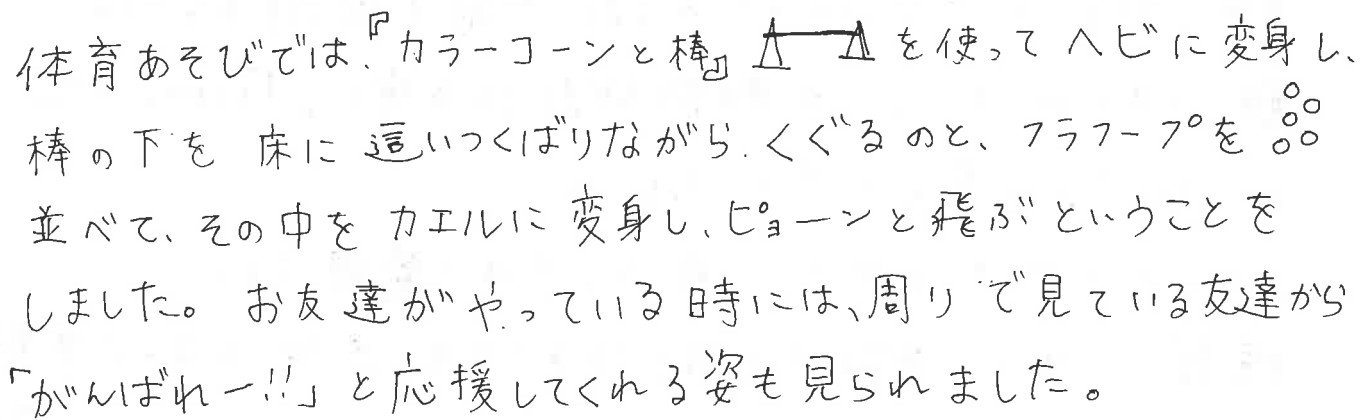 体育あそびでは、『カラーコーンと棒』を使ってヘビに変身し、
棒の下を床に這いつくばりながら、くぐるのと、フラフープを
並べて、その中をカエルに変身し、ピョーンと飛ぶということを
しました。お友達がやっている時には、周りで見ている友達から
「がんばれー!!」と応援してくれる姿も見られました。